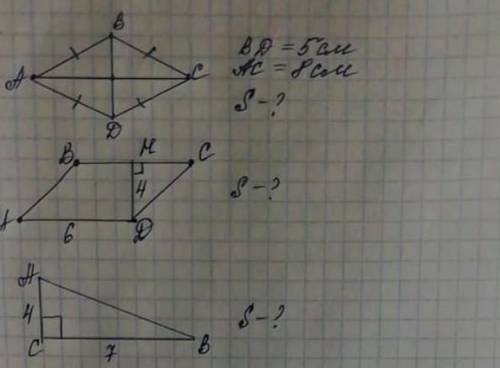 B
A
C
D
BD = 5 см
AC = 8 см
S - ?
B
H
C
4
A
6
D
S - ?
A
4
C
7
B
S - ?